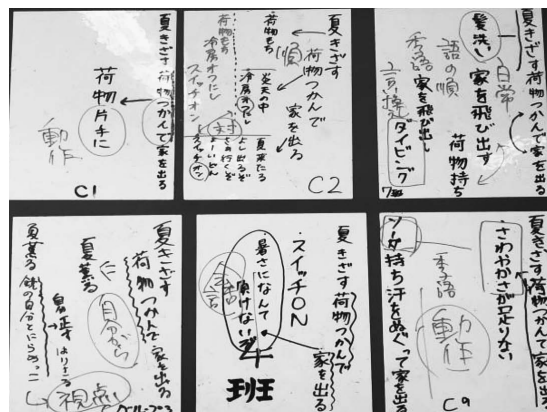 夏きざす荷物つかんで家を出る
荷物片手に
動作
C1
夏きざす
荷物つかんで
家を出る
荷物もち
順
炎天の中
夏来たる
冷房オフにし
スイッチオン
対
C2
夏きざす荷物つかんで家を出る
髪洗い家を飛び出す
日常
荷物持ち
語の順
季語
家を飛び出し
タイピング
夏きざす
荷物つかんで家を出る
夏薫る
自分から
夏薫る鏡の自分とにらめっこ
視点
夏きざす荷物つかんで
家を出る
スイッチON
暑さになんて
負けないぞ
会話
4班
夏きざす荷物つかんで家を出る
さわやかさが足りない
季語
動作
ソーダ持ち汗をぬぐって家を出る
C9